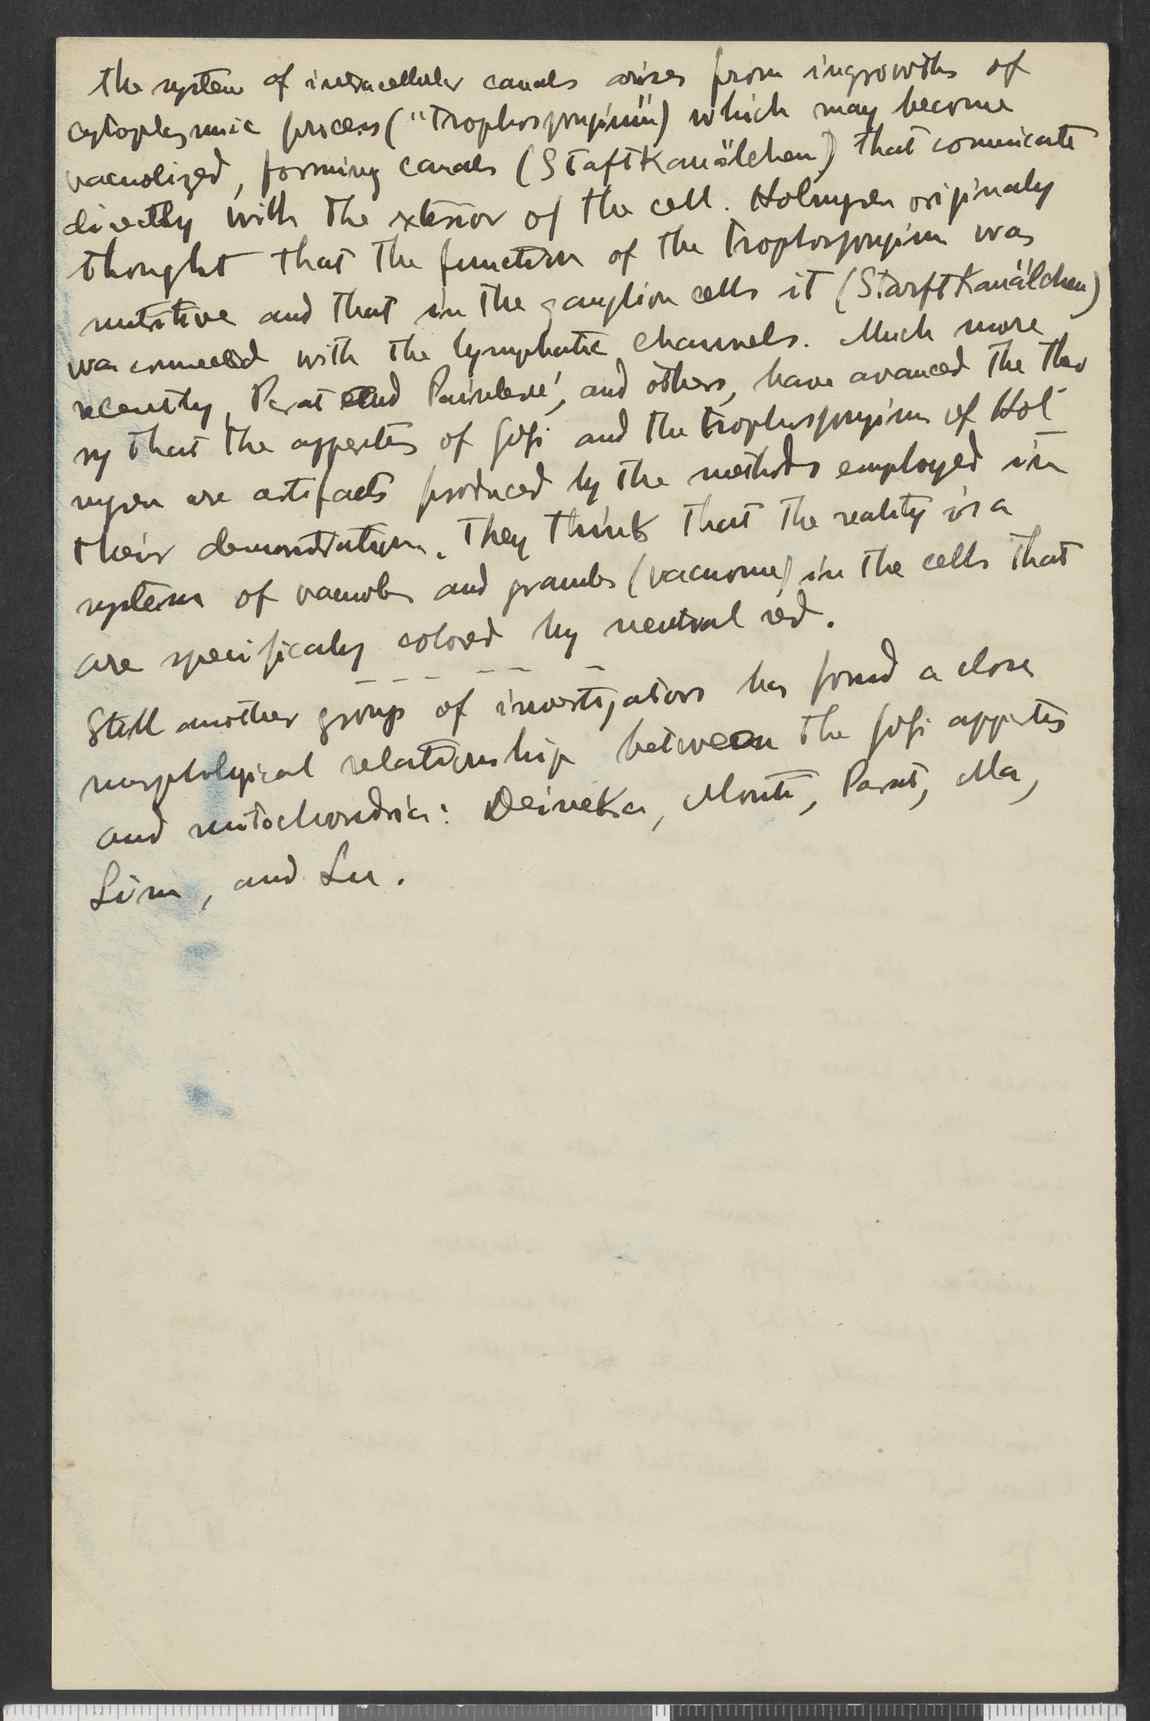 the system of intracellular canals arises from ingrowths of
cytoplasmic process ("trophospongium") which may become
vacuolized, forming canals (StaftKanälchen) that comunicate
directly with the exterior of the cell. Holmgren originaly
thought that the function of the trophospongium was
nutritive and that in the ganglion cells it (StarftKanälchen)
was connected with the lymphatic channels. Much more
recently, Parat and Painlevé, and others, have avanced the theo
ry that the apparatus of Golgi and the trophospongium of Hol-
mgren are artifacts produced by the methods employed in
their demonstration. They think that the reality is a
system of vacuoles and granules (vacuome) in the cells that
are specificaly colored by neutral red.
Still another group of investigators has found a close
morphological relationship between the Golgi appartus
and mitochondria: Deineka, Monti, Parat, Ma,
Lim, and Liu.